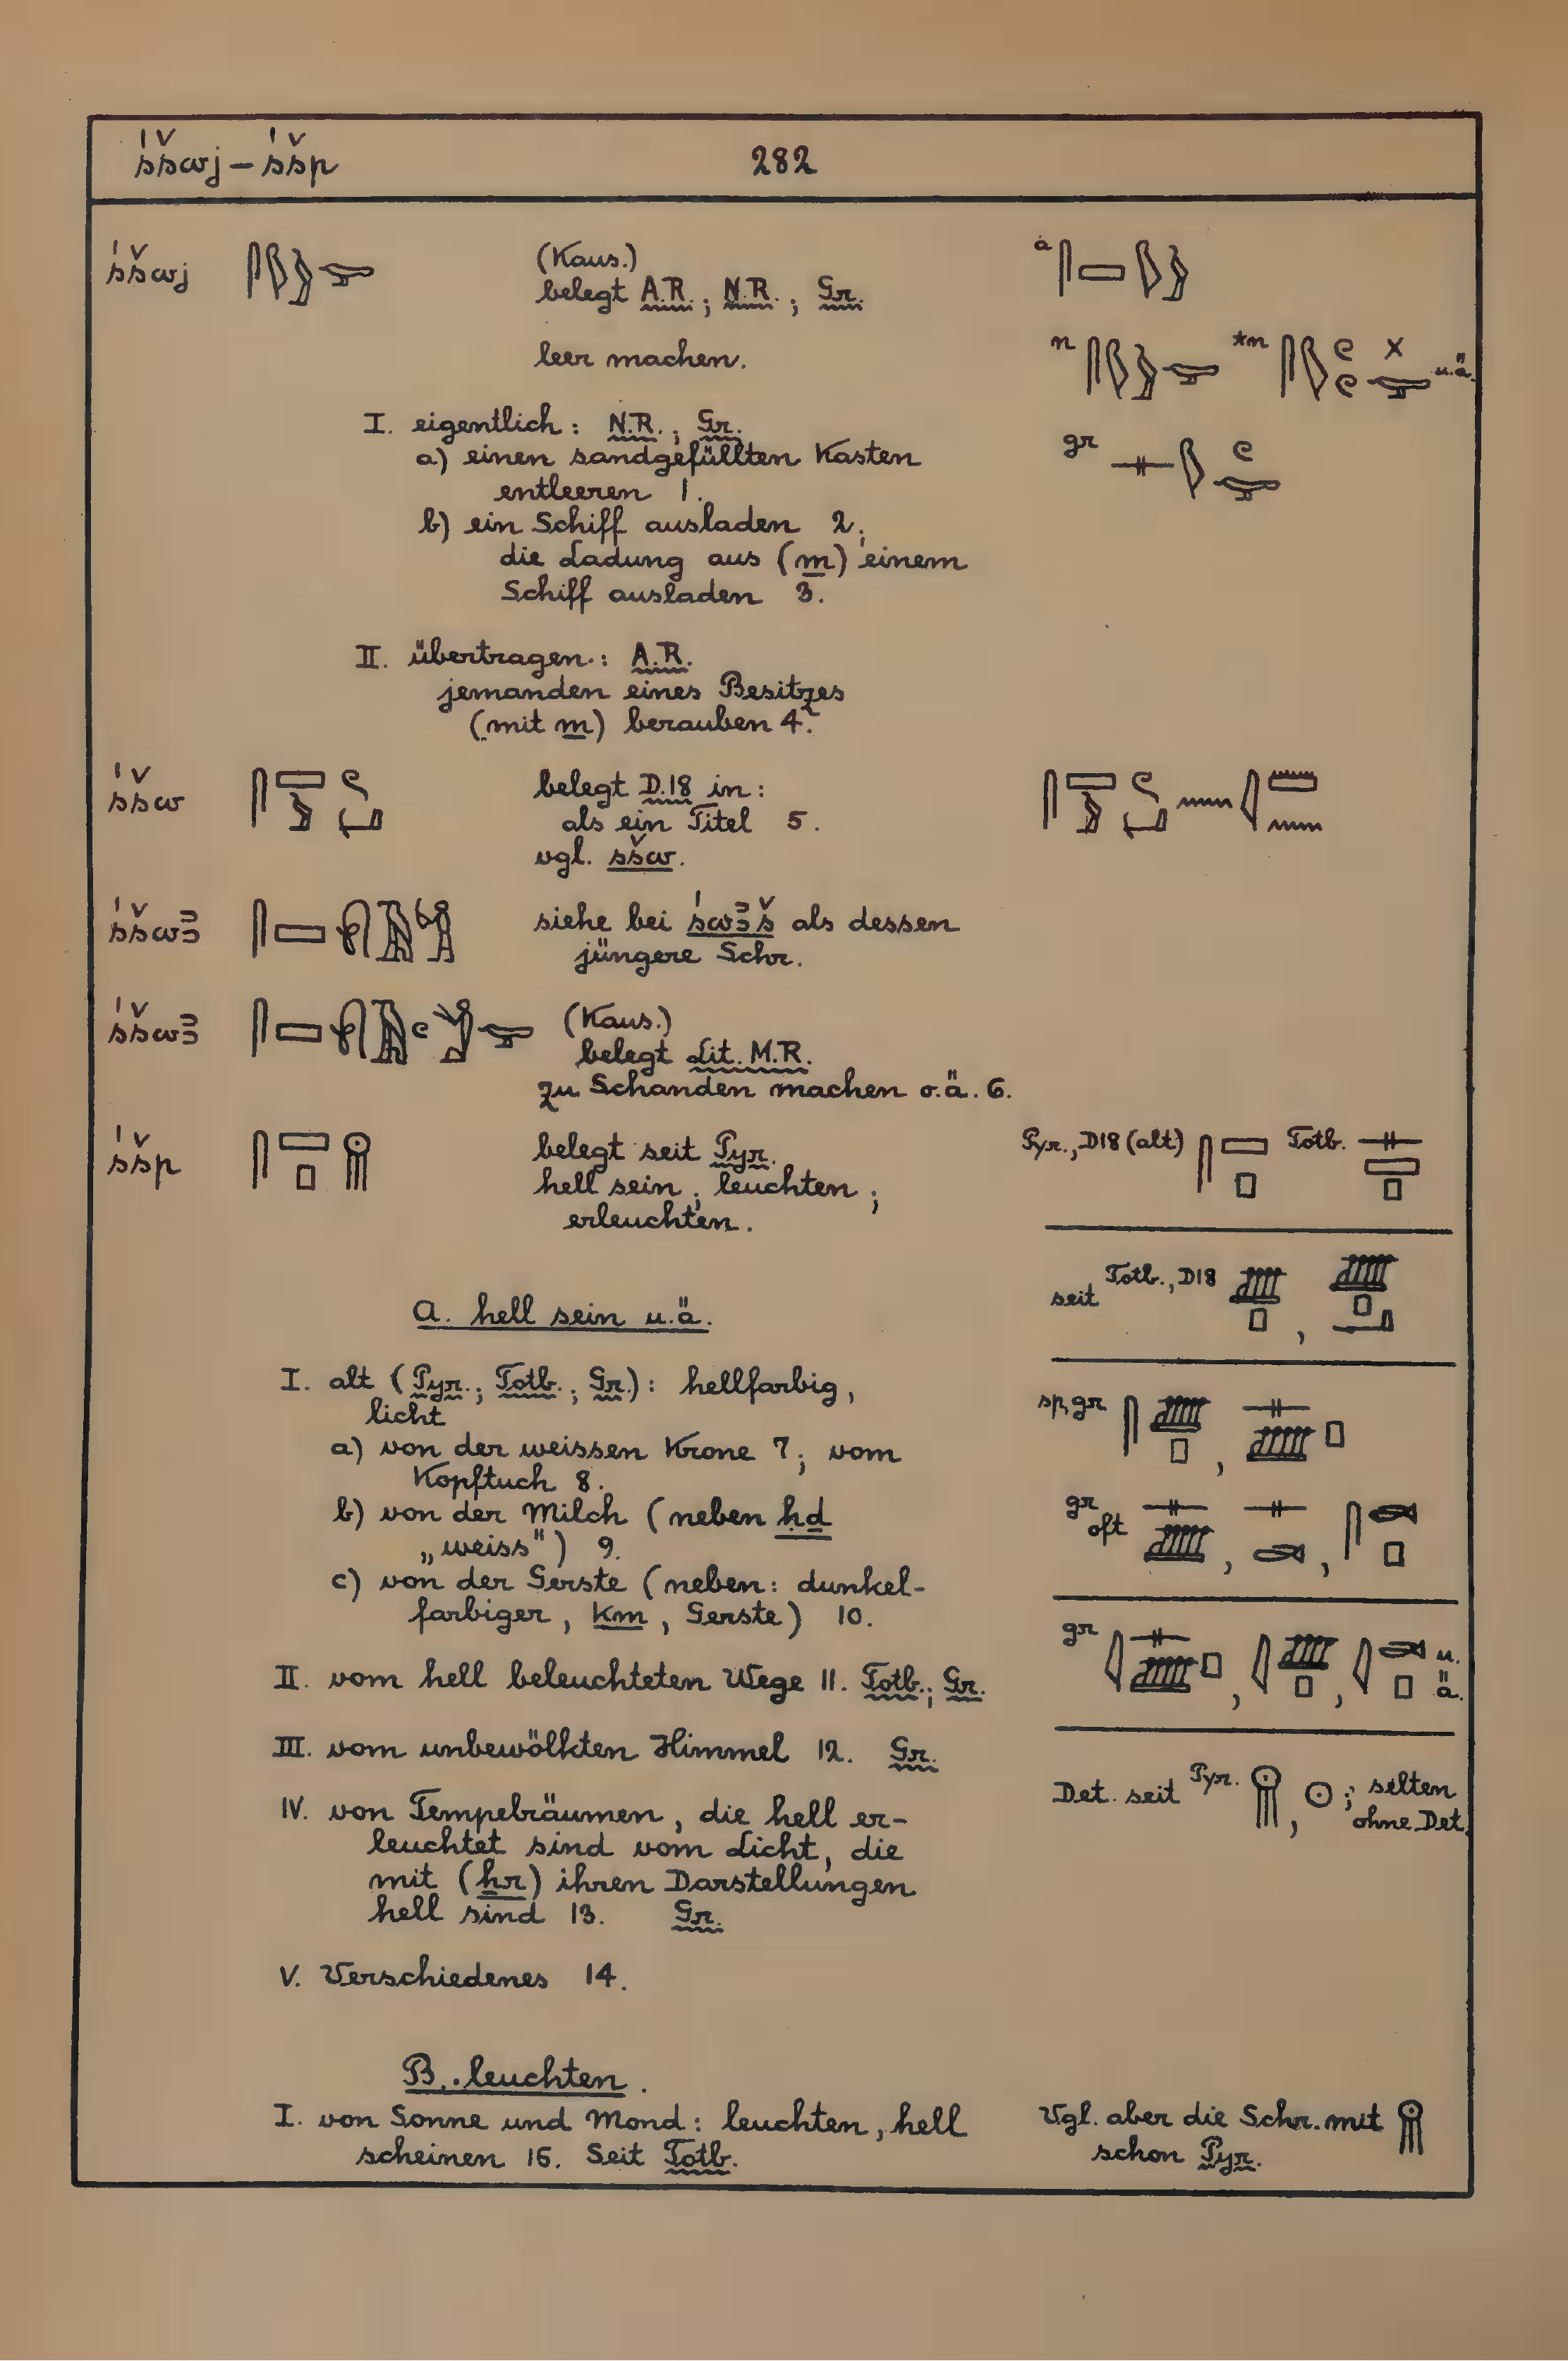 śšwj – śšp 282
śšwj (Kaus.)
belegt A.R.; N.R.; Gr.
leer machen.
I. eigentlich: N.R.; Gr.
a) einen sandgefüllten Kasten
entleeren 1.
b) ein Schiff ausladen 2;
die Ladung aus (m) einem
Schiff ausladen 3.
II. übertragen: A.R.
jemanden eines Besitzes
(mit m) berauben 4.
a
n *n u.ä.
gr
śšw belegt D.18 in:
als ein Titel 5.
vgl. sšw.
śšwꜣ siehe bei śwꜣš als dessen
jüngere Schr.
śšwꜣ (Kaus.)
belegt Lit. M.R.
zu Schanden machen o.ä. 6.
śšp belegt seit Pyr.
hell sein; leuchten;
erleuchten.
A. hell sein u.ä.
I. alt (Pyr.; Totb.; Gr.): hellfarbig,
licht
a) von der weissen Krone 7; vom
Kopftuch 8.
b) von der Milch (neben ḥḏ
„weiss") 9.
c) von der Gerste (neben: dunkel-
farbiger, km, Gerste) 10.
II. vom hell beleuchteten Wege 11. Totb.; Gr.
III. vom unbewölkten Himmel 12. Gr.
IV. von Tempelräumen, die hell er-
leuchtet sind vom Licht, die
mit (ḥr) ihren Darstellungen
hell sind 13. Gr.
V. Verschiedenes 14.
B. leuchten.
I. von Sonne und Mond: leuchten, hell
scheinen 15. Seit Totb.
Pyr., D18 (alt) Totb.
seit Totb., D18 ,
sp, gr ,
gr oft , ,
gr , , u.
ä.
Det. seit Pyr. , ; selten
ohne Det.
Vgl. aber die Schr. mit
schon Pyr.